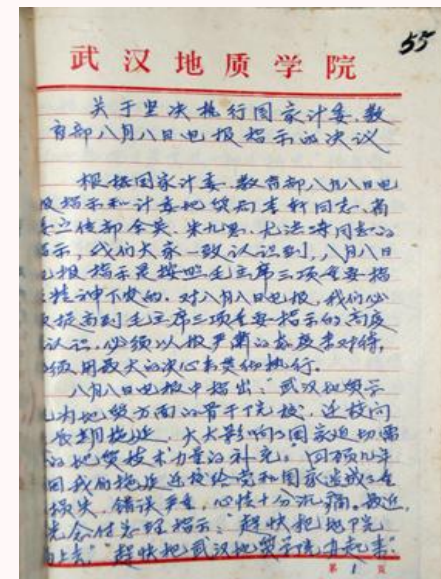 55
武汉地质学院
关于坚决执行国家计委、教
育部八月八日电报指示的决议
根据国家计委、教育部八月八日电
报指示和计委地质局李轩同志、省
委宣传部余英、宋九思、尤洪涛同志的
指示,我们大家一致认识到,八月八日
电报指示是按照毛主席三项重要指
示精神下发的。对八月八日电报,我们必
须提高到毛主席三项重要指示的高度
来认识,必须以极严肃的态度来对待,
必须用最大的决心来贯彻执行。
八月八日电报中指出:"武汉地质学
院为地质方面的骨干院校,迁校问
题长期拖延,大大影响了国家迫切需
要的地质技术力量的补充。"回顾几年
间我们拖延迁校给党和国家造成了在
损失,错误严重,心情十分沉痛。最近,
先念付总理指示:"赶快把地院
""赶快把武汉地质学院办起来"。
第 1 页